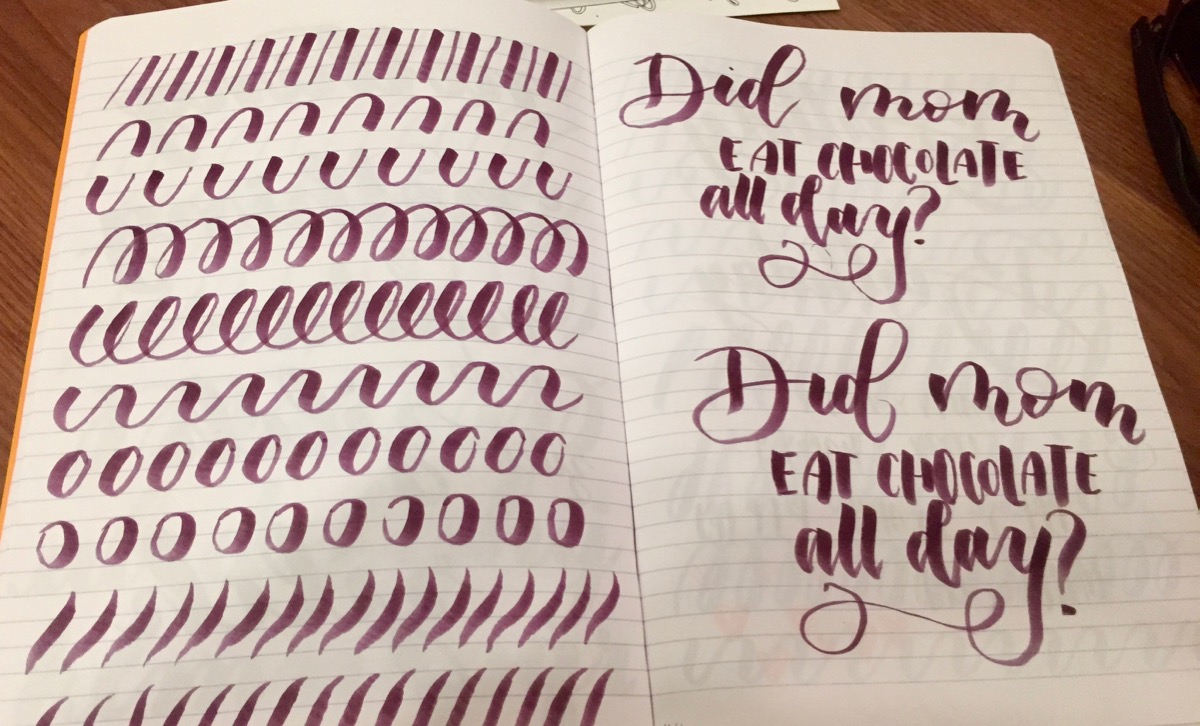 Did mom
EAT CHOCOLATE
all day?
Did mom
EAT CHOCOLATE
all day?